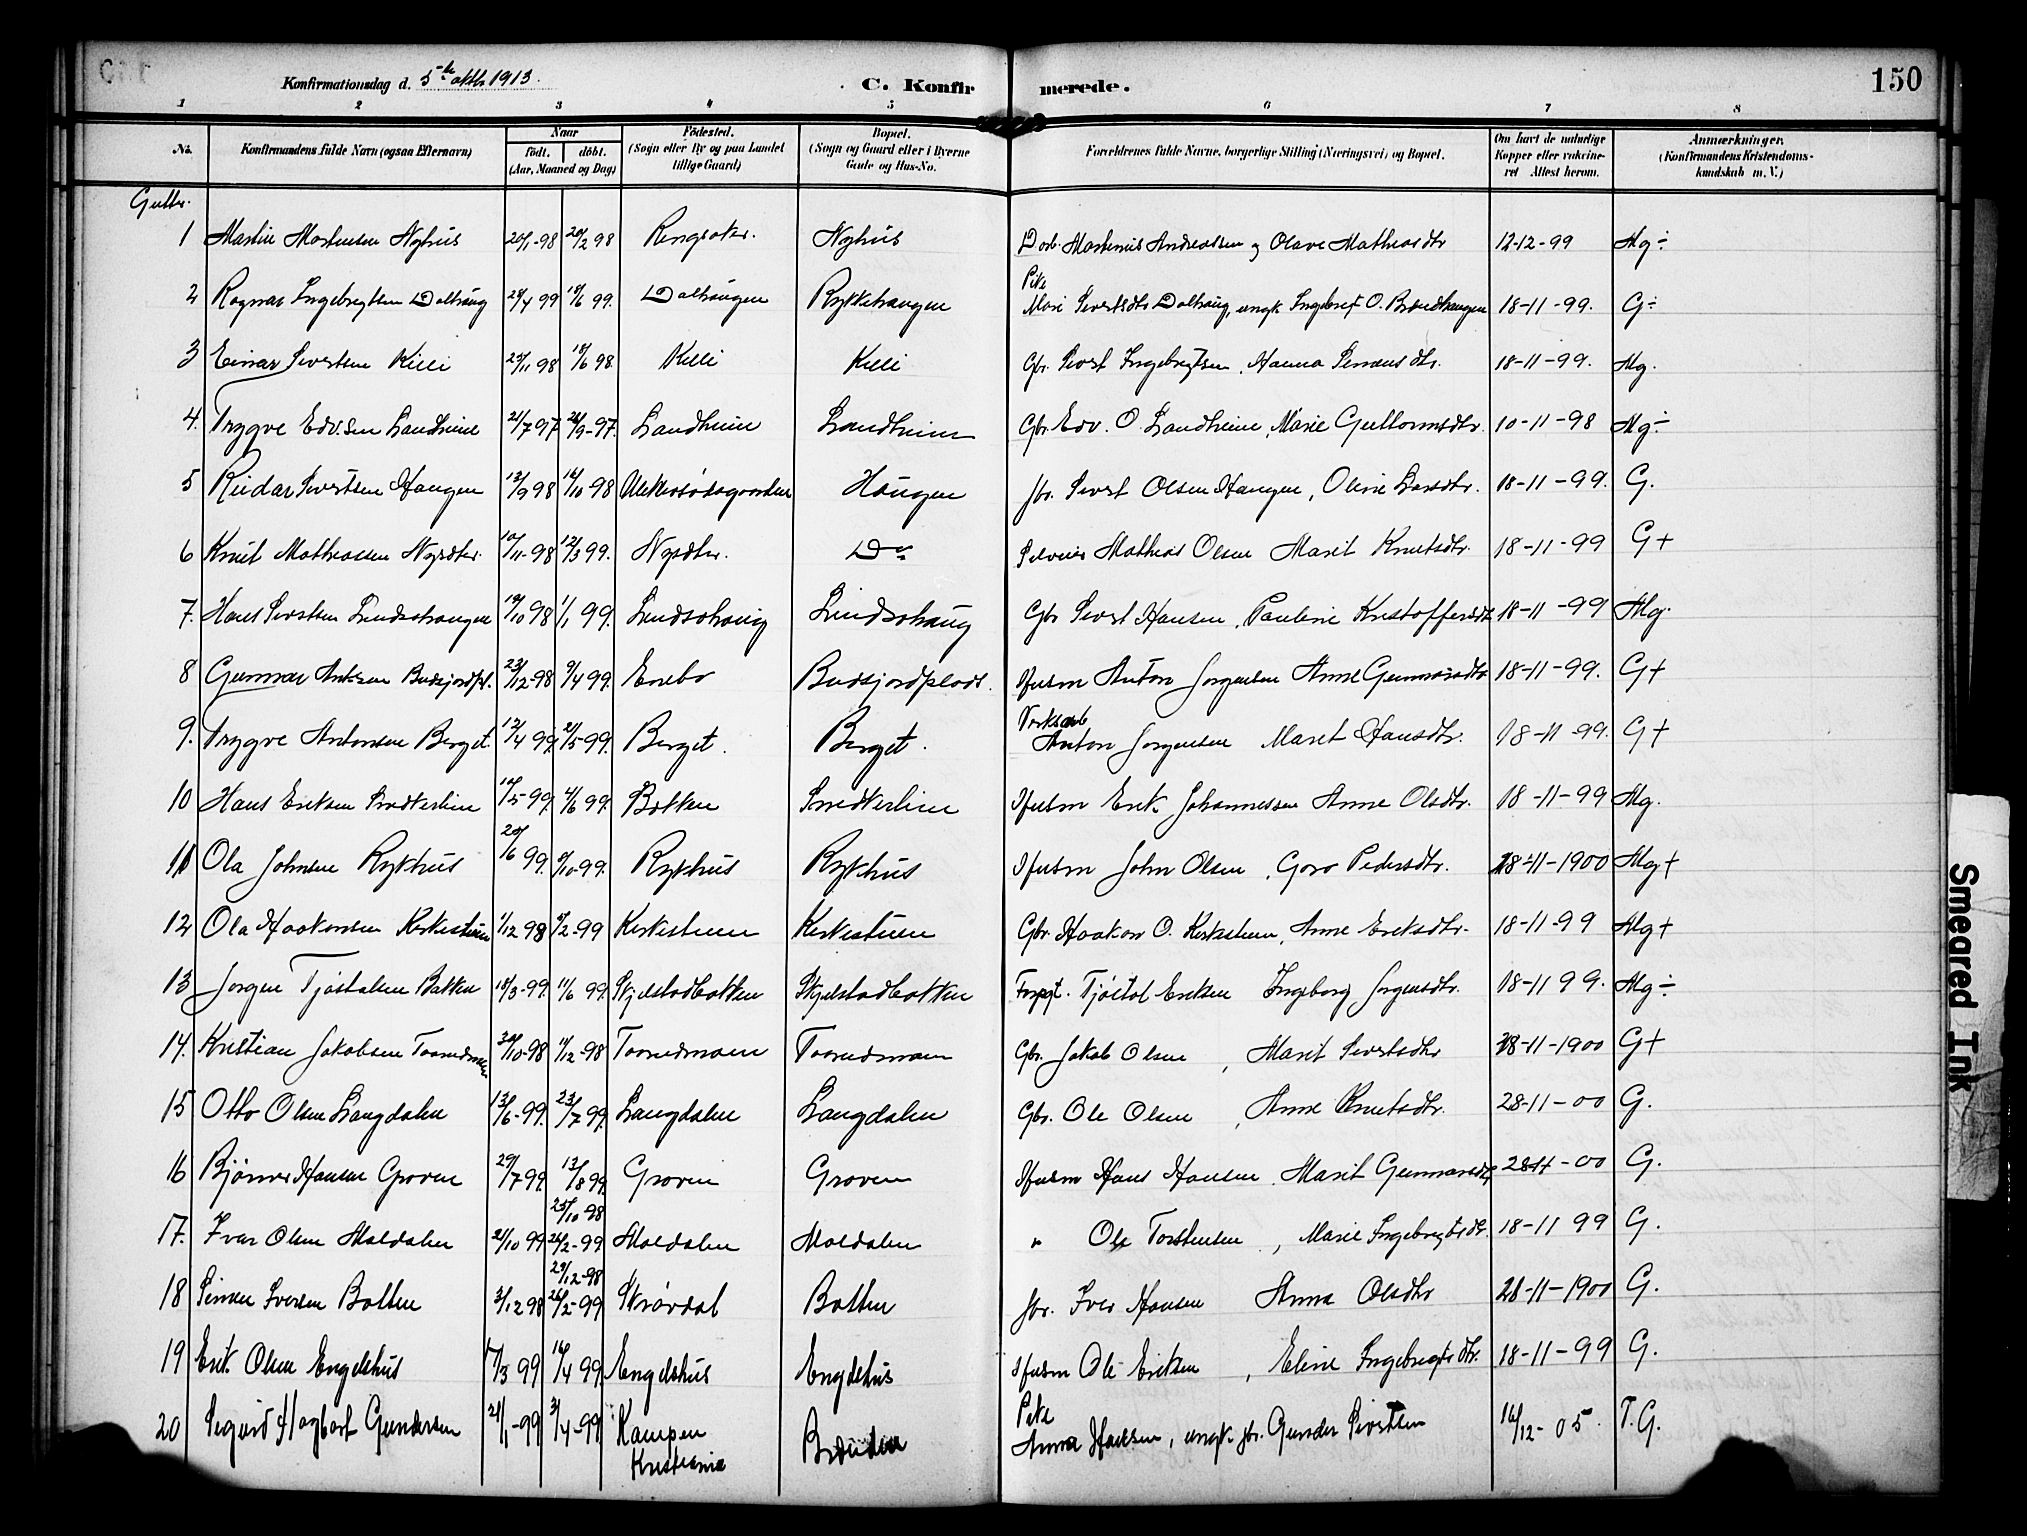 Konfirmationsdag d. 5te oktb 1913.
C. Konfirmerede.
150
1 2 3 4 5 6 7 8
No.
Konfirmandens fulde Navn (ogsaa Efternavn)
Naar
født. døbt.
(Aar, Maaned og Dag)
Fødested.
(Sogn eller By og paa Landet
tillige Gaard)
Bopæl.
(Sogn og Gaard eller i Byerne
Gade og Hus-No.
Forældrenes fulde Navne, borgerlige Stilling (Næringsvei) og Bopæl.
Om havt de naturlige
Kopper eller vakcine-
ret Attest herom.
Anmærkninger.
(Konfirmandens Kristendoms-
kundskab m. V.)
Gutter.
1 Martin Martensen Nyhus 20/2 98 Ringsaker. Nyhus Martenius Andreassen og Olave Mathiasdtr 12-12-99 Mg ÷
Pike
2 Ragnar Ingebregtsen Dalhaug 28/4 99 18/6 99. Dalhaugen Rykkehaugen Mari Sivertsdtr Dalhaug, ungk. Ingebret O. Brændhaugen 18-11-99. G ÷
3 Einar Sivertsen Killi 18/6 98. Killi Killi Gbr. Sivert Ingebregtsen, Hanna Simensdtr. 18-11-99. Mg.
4. Trygve Edv.sen Landheim 21/7 97 26/9-97. Landheim Landheim Gbr. Edv. O. Landheim, Marie Guttormsdtr. 10-11-98 Mg ÷
5 Reidar Sivertsen Haugen 12/9 98 16/10-98 Haugen Sivert Olsen Haugen, Oline Larsdtr. 18-11-99. G.
6 Knut Mathiassen Nysæter. 10/11-98 12/3 99. Nysæter. Do Mathias Olsen Marit Knutsdtr. 18-11-99 G +
7. Hans Sivertsen Lindsøhaugen 19/10 98 1/1 99. Lindsøhaug Lindsøhaug Gbr Sivert Hansen, Pauline Kristoffersdtr 18-11-99 Mg.
8 Gunnar Antonsen Budsjordpl. 23/12-98 9/4 99. Enebo Budsjordplads. Husm Anton Jørgensen Anne Gunnarsdtr 18-11-99. G +
Verksarb
9. Trygve Antonsen Berget. 12/4 99. 21/5-99. Berget. Berget. Anton Jørgensen Marit Hansdtr. 18-11-99. G +
10 Hans Eriksen Smedkerlien 10/5-99. 4/6 99. Bakken Smedkerlien Husm Erik Johannessen Anne Olsdtr. 18-11-99 Mg.
11 Ola Johnsen Rykhus 20/6 99. Rykhus Rykhus Husm John Olsen, Goro Pedersdtr. 28-11-1900 Mg +
12 Ola Haakonsen Kirkestuen 1/12 98 5/2-99 Kirkestuen Kirkestuen Gbr. Haakon O. Kirkestuen, Anne Eriksdtr. 18-11-99 Mg +
13 Jørgen Tjøstolsen Bakken 18/3-99. 11/6 99. Skjelstadbakken Skjelstadbakken Forpgt. Tjøstol Eriksen Ingeborg Jørgensdtr. 18-11 99. Mg ÷
14. Kristian Jakobsen Taarudmoen 30/10-98 11/12-98 Taarudmoen Taarudmoen Gbr. Jakob Olsen, Marit Sivertsdtr 28-11-1900 G +
15 Otto Olsen Langdalen 13/6-99. 23/7 99. Langdalen Langdalen Gbr. Ole Olsen, Anne Knutsdtr. 28-11-00 G.
16 Bjørner Hansen Groven 29/7 99. 13/8 99. Groven Groven Husm Hans Hansen, Marit Gunnarsdtr 28-11-00 G.
25/10-98
17. Ivar Olsen Moldalen 21/10 99 26/2-99 Moldalen Moldalen " Ole Torstensen, Marie Ingebregtsdtr. 18-11 99 G.
29/12-98
18 Simen Iversen Botten 3/12 98 26/2-99 Skrovdal Botten Iver Hansen Anna Olsdtr 28-11-1900 G.
19 Erik Olsen Engelshus 17/3 99 16/4 99 Engelshus Engelshus Husm Ole Eriksen, Eline Ingebregtsdtr. 18-11-99 G.
Pike
20 Sigurd Hagbart Gundersen 21/1-99 3/4-99 Kampen Anna Hansen, ungk. Gunder Sivertsen 16/12-05. T. G.
Kristiania
Smeared Ink